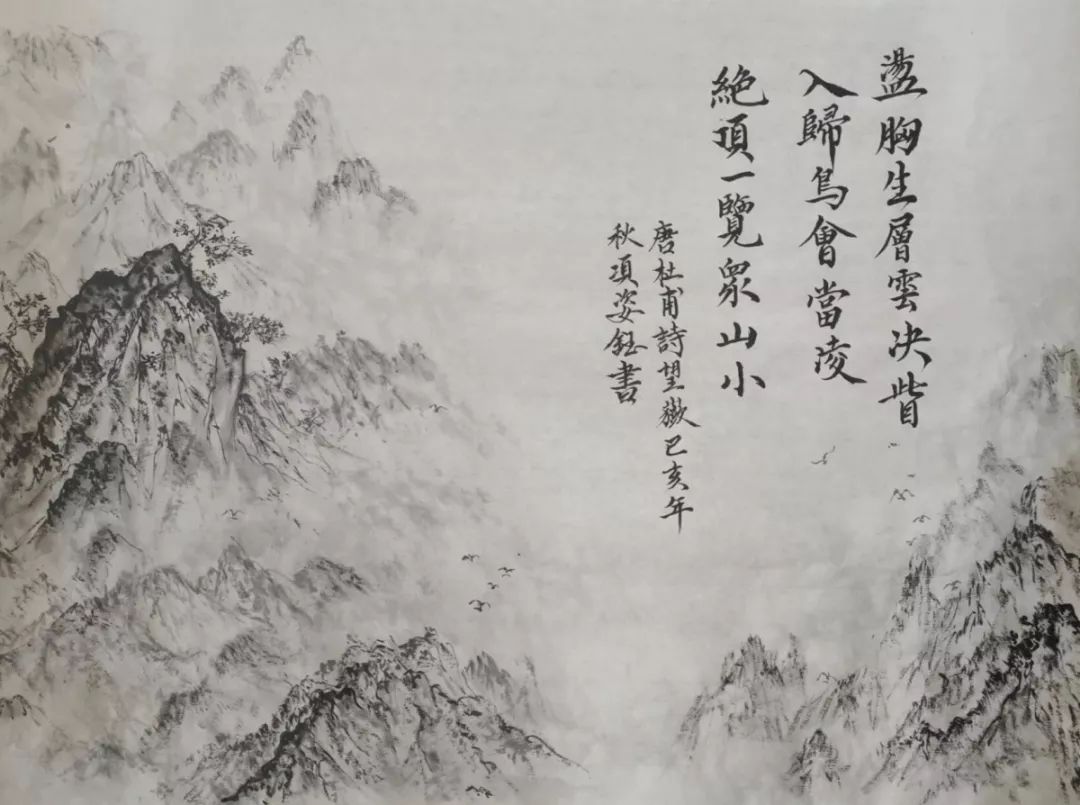 盪胸生層雲决眥
入歸鳥會當凌
絶頂一覽衆山小
唐杜甫詩望嶽己亥年
秋項姿鈺書